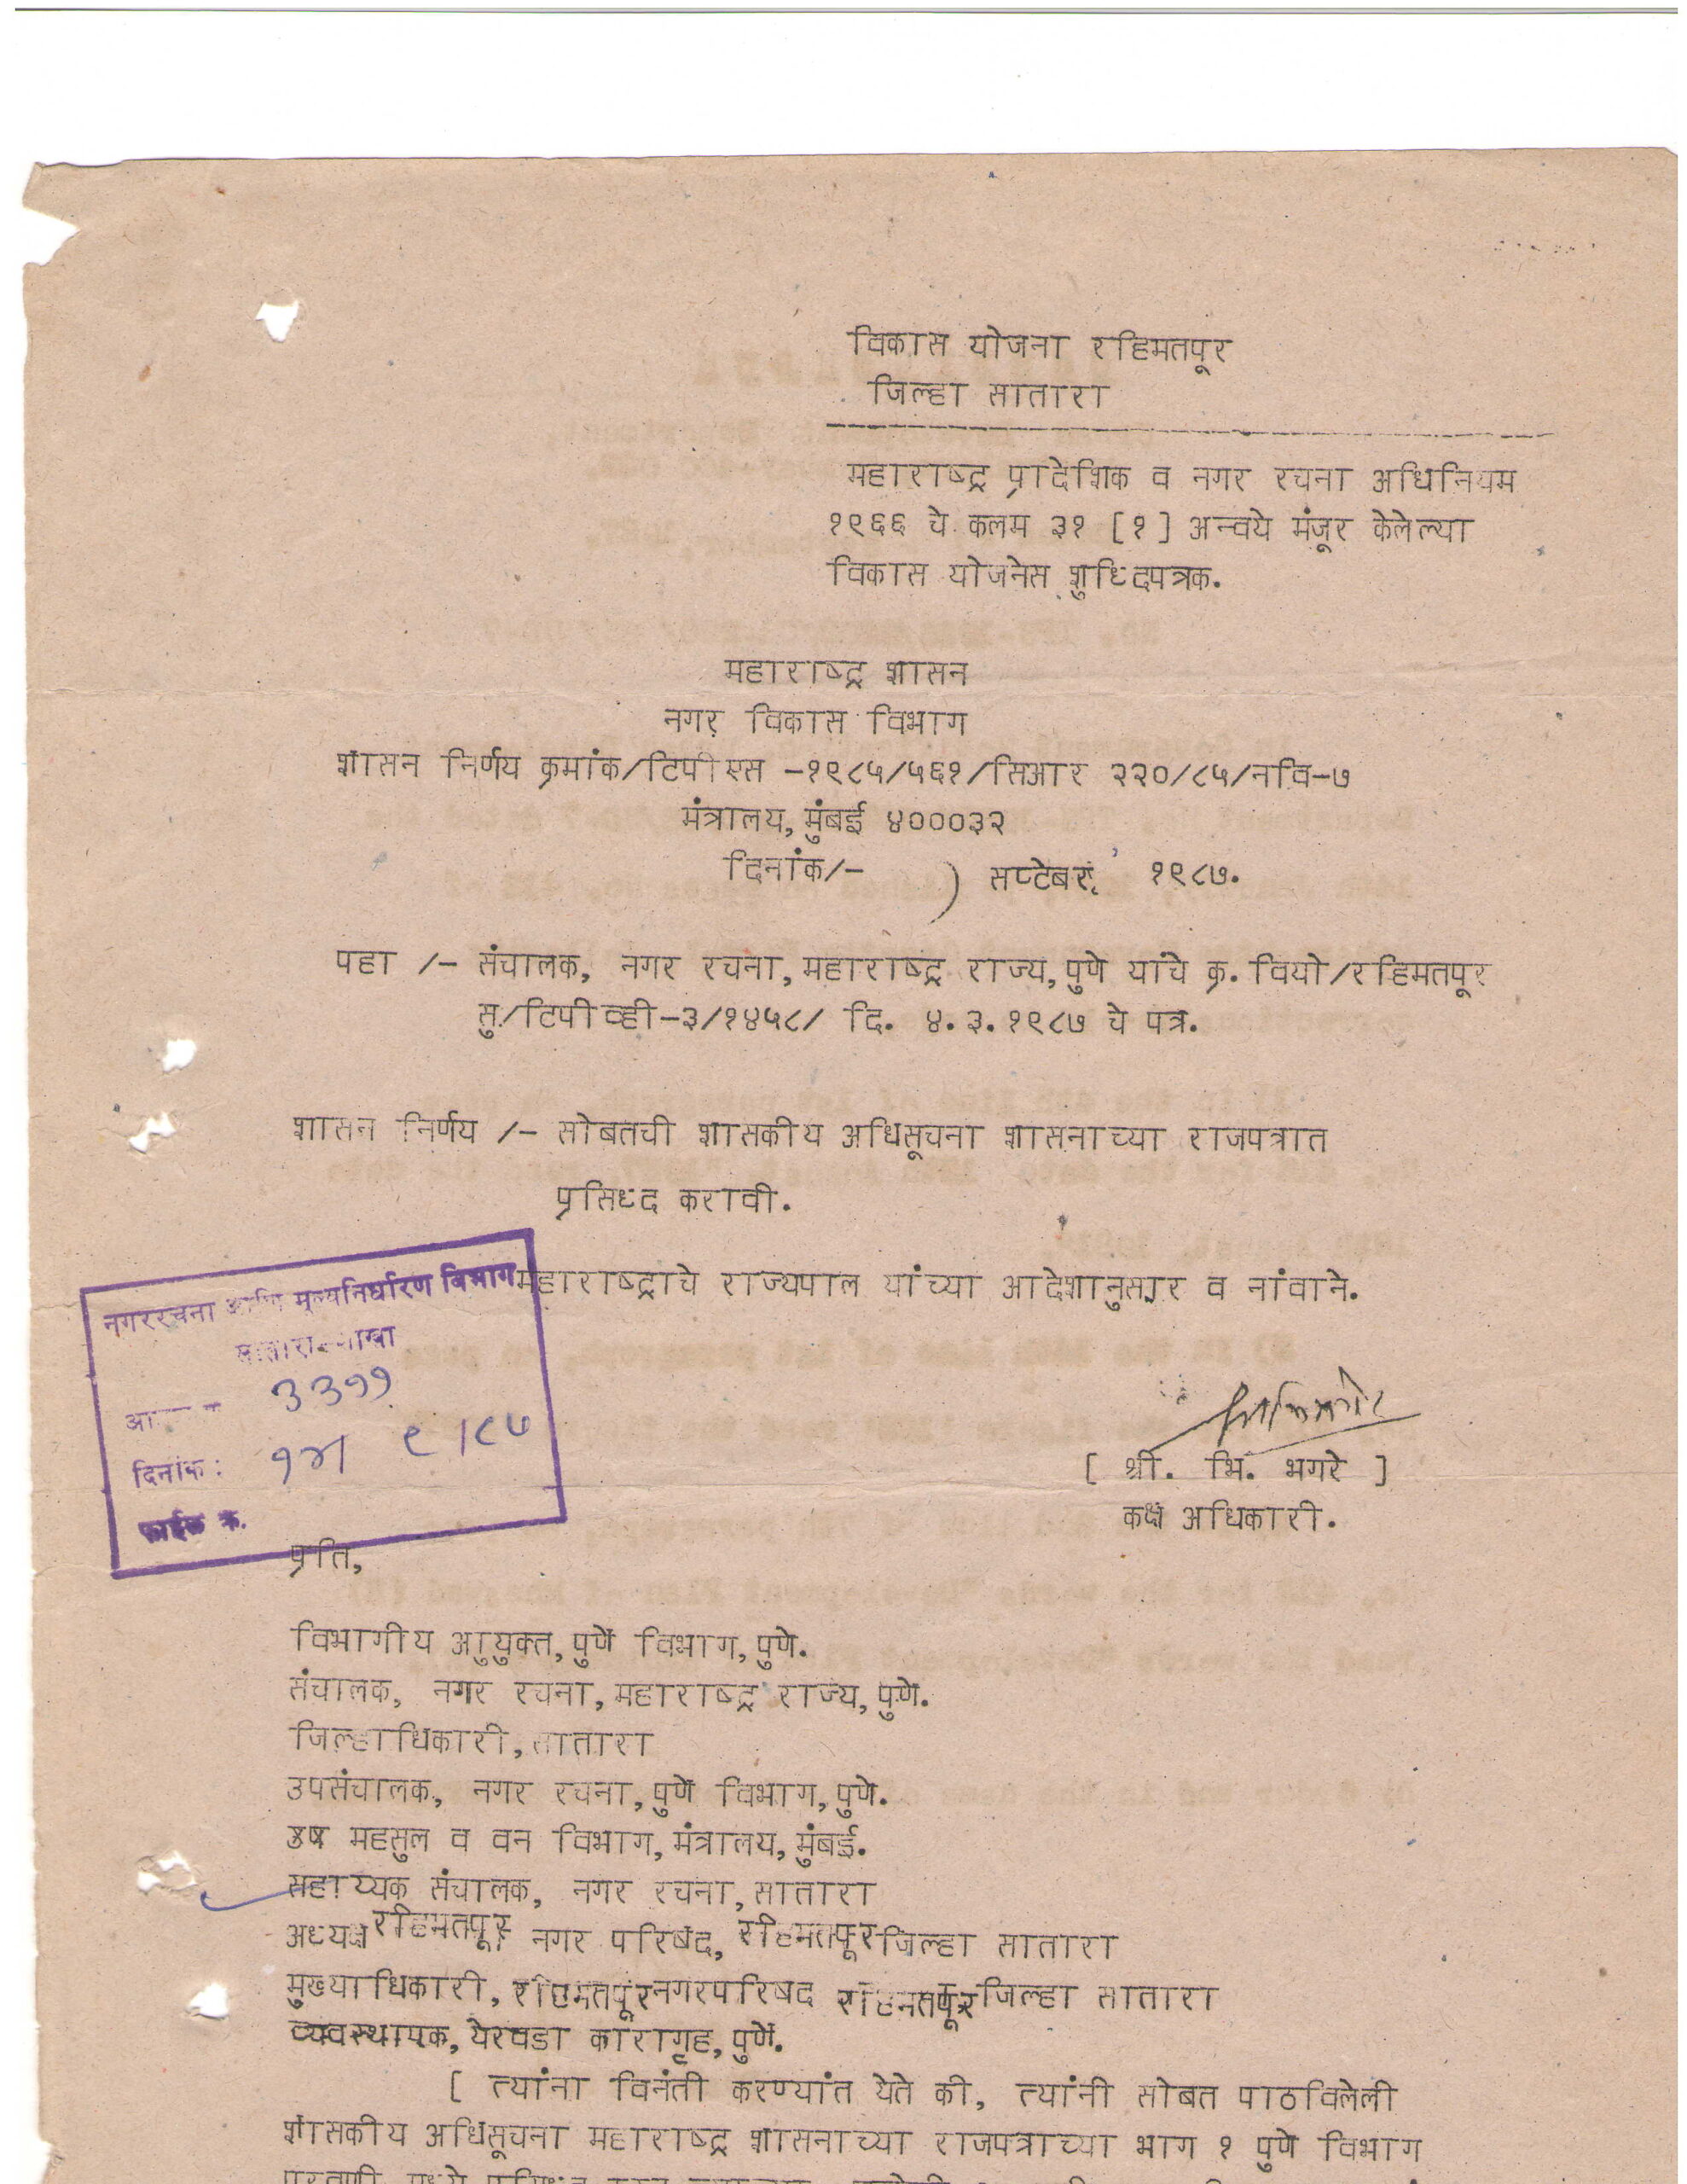 विकास योजना रहिमतपूर
जिल्हा सातारा
महाराष्ट्र प्रादेशिक व नगर रचना अधिनियम
१९६६ चे कलम ३१ [१] अन्वये मंजूर केलेल्या
विकास योजनेस शुध्दिपत्रक.
महाराष्ट्र शासन
नगर विकास विभाग
शासन निर्णय क्रमांक/टिपीएस -१९८५/५६१/सिआर २२०/८५/नवि-७
मंत्रालय, मुंबई ४०००३२
दिनांक/- ) सप्टेबर, १९८७.
पहा /- संचालक, नगर रचना, महाराष्ट्र राज्य, पुणे यांचे क्र. वियो/रहिमतपूर
सु/टिपीव्ही-३/१४५८/ दि. ४.३.१९८७ चे पत्र.
शासन निर्णय /- सोबतची शासकीय अधिसूचना शासनाच्या राजपत्रात
प्रसिध्द करावी.
महाराष्ट्राचे राज्यपाल यांच्या आदेशानुसार व नांवाने.
नगररचना आणि मूल्यनिर्धारण विभाग
सातारा शाखा
३३११
दिनांक : १४/ ९/८७
फाईल क्र.
[ श्री. भि. भगरे ]
कक्ष अधिकारी.
प्रति,
विभागीय आयुक्त, पुणे विभाग, पुणे.
संचालक, नगर रचना, महाराष्ट्र राज्य, पुणे.
जिल्हाधिकारी, सातारा
उपसंचालक, नगर रचना, पुणे विभाग, पुणे.
महसुल व वन विभाग, मंत्रालय, मुंबई.
सहाय्यक संचालक, नगर रचना, सातारा
अध्यक्ष रहिमतपूर नगर परिषद, रहिमतपूर जिल्हा सातारा
मुख्याधिकारी, रहिमतपूर नगरपरिषद रहिमतपूर जिल्हा सातारा
व्यवस्थापक, येरवडा कारागृह, पुणे.
[ त्यांना विनंती करण्यांत येते की, त्यांनी सोबत पाठविलेली
शासकीय अधिसूचना महाराष्ट्र शासनाच्या राजपत्राच्या भाग १ पुणे विभाग